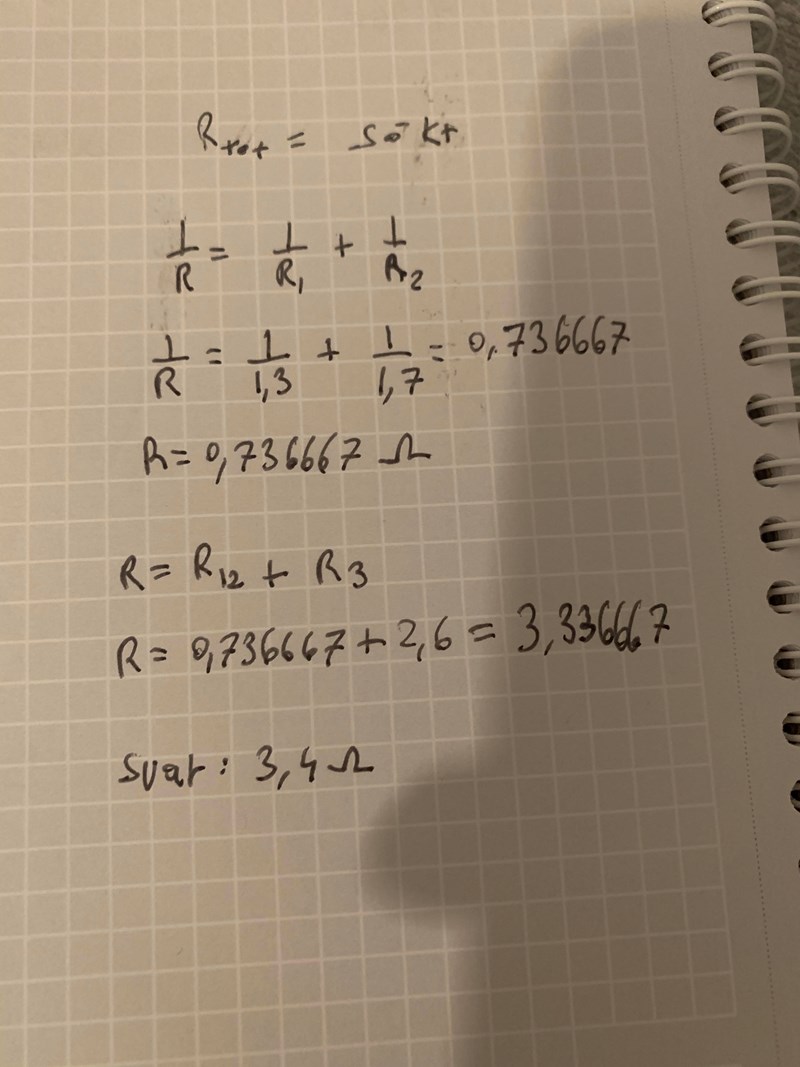 R_tot = sökt
1/R = 1/R₁ + 1/R₂
1/R = 1/1,3 + 1/1,7 = 0,736667
R = 0,736667 Ω
R = R₁₂ + R₃
R = 0,736667 + 2,6 = 3,336667
Svar: 3,4 Ω